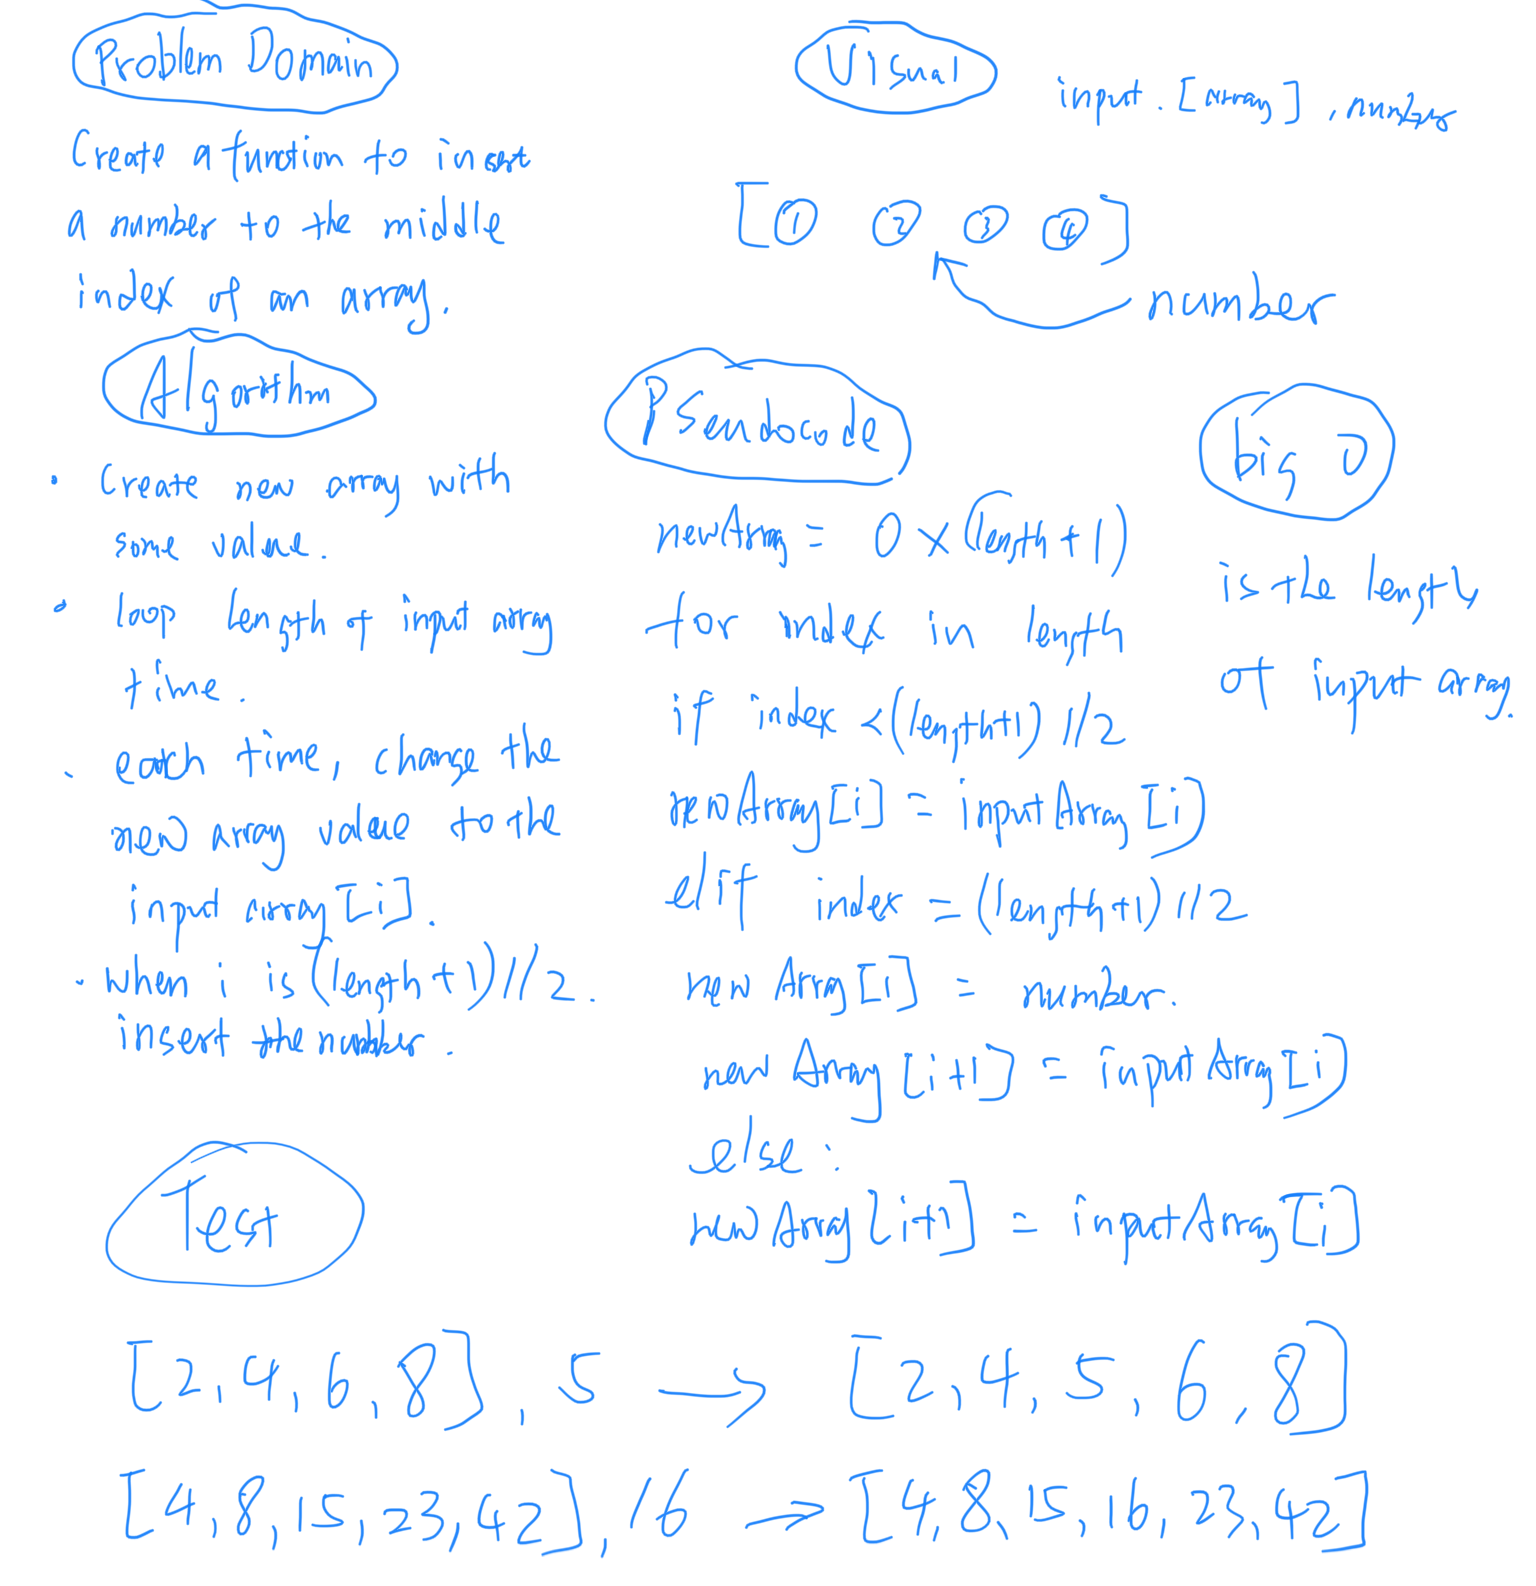 Problem Domain
Create a function to insert
a number to the middle
index of an array.
Visual
input. [array], number
[① ② ③ ④]
number
Algorithm
· Create new array with
some value.
· loop length of input array
time.
· each time, change the
new array value to the
input array[i].
· when i is (length+1)//2.
insert the number.
Pseudocode
newArray = 0 x (length+1)
for index in length
if index <(length+1)//2
newArray[i] = inputArray[i]
elif index = (length+1)//2
newArray[i] = number.
newArray[i+1] = inputArray[i]
else:
newArray[i+1] = inputArray[i]
big O
is the length
of input array.
Test
[2,4,6,8], 5 → [2,4,5,6,8]
[4,8,15,23,42], 16 → [4,8,15,16,23,42]